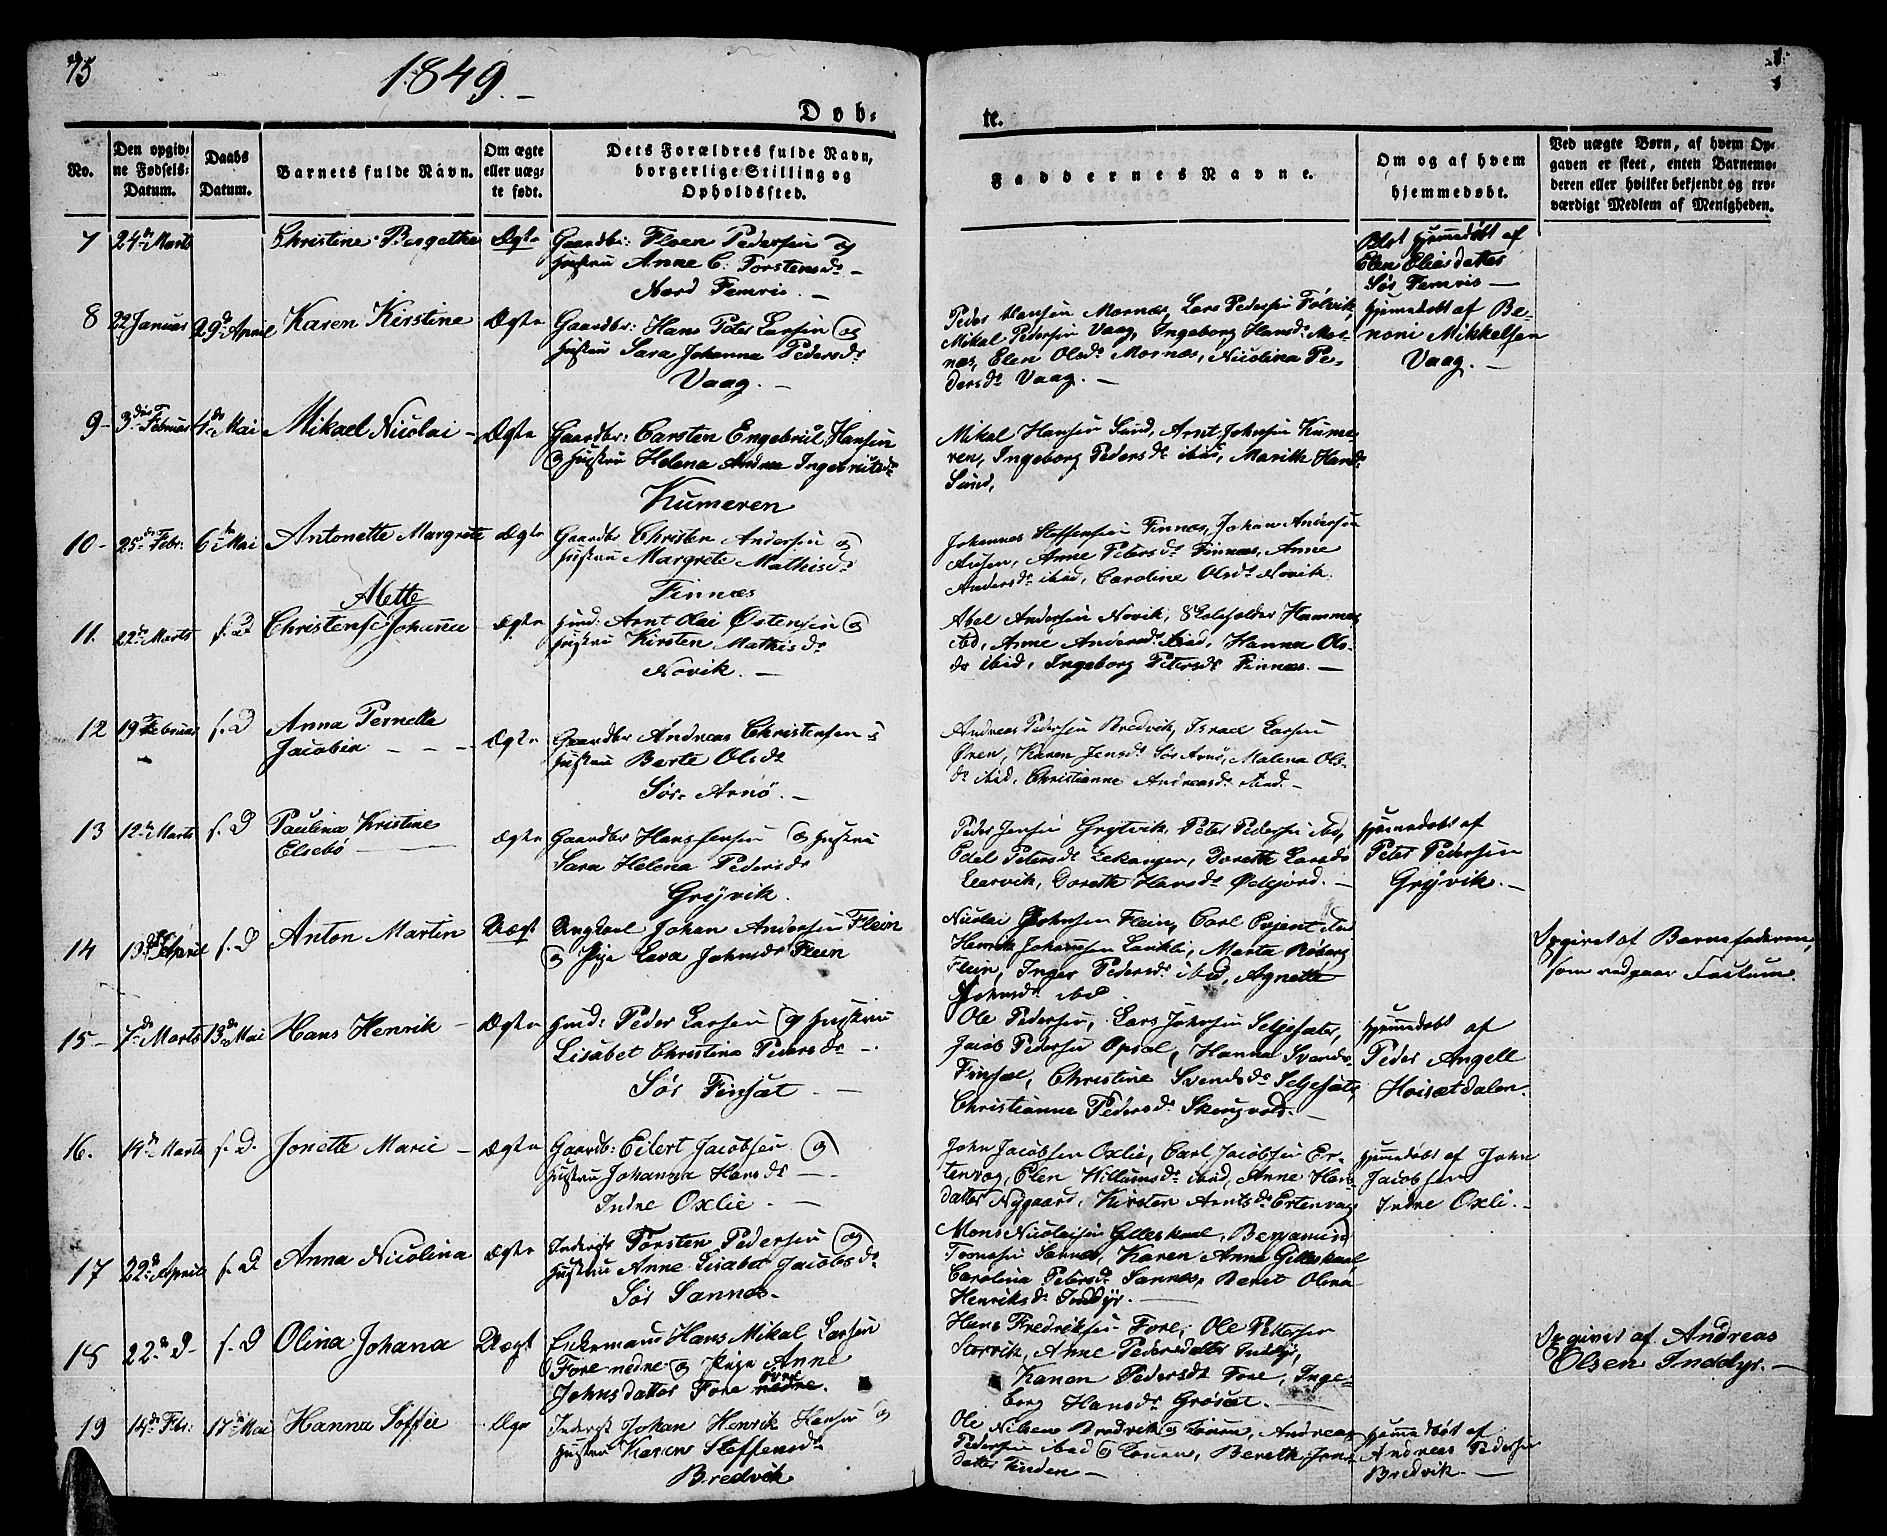 75
1849.
Døb-
te.
No.
Den opgiv-
ne Fødsels-
Datum.
Daabs
Datum.
Barnets fulde Navn.
Om ægte
eller uæg-
te født.
Dets Forældres fulde Navn,
borgerlige Stilling og
Opholdssted.
Faddernes Navne.
Om og af hvem
hjemmedøbt.
Ved uægte Børn, af hvem Op-
gaven er skeet, enten Barnemo-
deren eller hvilket bekjendt og tro-
værdigt Medlem af Menigheden.
7 24de Marts Christine Bergethe Ægte Gaardbr: Floen Pedersen og
Hustru Anne C: Torstensdr
Nord Femris.
Blot hjemmedøbt af
Elen Eliasdatter
Sør Femris
8 22 Januar 29de April Karen Kirstine Ægte Gaardbr: Hans Peter Larsen og
Hustru Sara Johanna Pedersdr
Vaag.
Peder Hansen Mornæs, Lars Pedersen Følvik,
Mikal Pedersen Vaag, Ingeborg Hansdr Mor-
næs, Elen Olsdr Mornæs, Nicolina Pe-
dersdr Vaag.
hjemmedøbt af Be-
noni Mikkelsen
Vaag.
9 3die Februar 4de Mai Mikael Nicolai Ægte Gaardbr: Carsten Engebrit Hansen
og Hustru Helena Andrea Ingebritsdr
Kumeren
Mikal Hansen Sund, Arnt Johnsen Kume-
ren, Ingeborg Pedersdr ibid, Marith Hansdr
Sund,
10 25de Febr: 6te Mai Antonette Margrete Ægte Gaardbr Christen Andersen og
Hustru Margrete Mathisdr
Finnæs
Johannes Steffensen Finnæs, Johan Andersen
Anne Petersdr Finnæs, Anne
Andersdr ibid, Caroline Olsdr Novik.
11. 22de Marts f. D Christense Alette Johanne Ægte Huusmd: Arnt Olai Østensen og
Hustru Kirsten Mathisdr
Novik.
Abel Andersen Novik, Skoleholder Hammer
ibd, Anne Andersdr ibid, Hanna Ols-
dr ibid, Ingeborg Petersdr Finnæs.
12 19de Februar f. D Anna Pernella
Jacobin Ægte Gaardbr Andreas Christensen &
Hustru Berte Olsdr
Sør Arnø.
Andreas Pedersen Bredvik, Israel Larsen
Øren, Karen Jensdr Sør Arnø, Malena Ols-
dr ibid, Christianne Andreasdr ibid.
13 12te Marts f. D Paulina Kristine
Elsebø Ægte Gaardbr Hans Jensen og Hustru
Sara Helena Pedersdr
Grytvik.
Peder Jensen Grytvik, Peter Pedersen ibd,
Edel Petersdr Eekanger, Dorethe Larsdr
Leervik, Dorethe Hansdr Øresjord.
hjemmedøbt af
Peter Pedersen
Grytvik.
14 13de April f. D Anton Martin Uægt Ungkarl Johan Andersen Flein
og Pige Lava Johnsdr Flein
Nicolai Johnsen Flein, Carl
Henrik Johannsen Lankli, Marta
Flein, Inger Pedersdr ibid, Agnette
Johnsdr ibd.
Opgivet af Barnefaderen,
som vedgaar Factum.
15 7de Marts 13de Mai Hans Henrik Ægte Huusmd: Peder Larsen og Hustru
Lisabet Christina Pedersdr
Sør Finset
Ole Pedersen, Lars Johnsen Seljesæter,
Jacob Pedersen Opsal, Hanna Svendsdr
Finsæt, Christine Svendsdr Seljesæter
Christianne Pedersdr Skeugvold.
hjemmedøbt af
Peder Angell
Hoisætdalen.
16. 14de Marts f. D. Jonette Marie Ægte Gaardb: Eilert Jacobsen og
Hustru Johanna Hansdr
Indre Oxlie
John Jacobsen Oxlie, Carl Jacobsen Er-
tenvog, Elen Willumsdr ibid, Anne Hans-
datter Nygaard, Kirsten Arntsdr Ertenvag
hjemmedøbt af John
Jacobsen
Indre Oxli.
17 22de April f. D. Anna Nicolina Ægte Inderst Torsten Pedersen og
Hustru Anne Lisabet Jacobsdr
Sør Sannæs.
Mons Nicolaisen Gilleskaal, Benjamin
Tomesen Sannæs, Karen Anna Gilleskaal
Carolina Petersdr Sannæs, Beret Olina
Henriksdr Inddyr.
18 22de D f. D Olina Johana Uægt Enkemand Hans Mikal Larsen
Fore nedre og Pige Anne
Johnsdatter Fore nedre.
øvre
Hans Fredriksen Fore, Ole Pettersen
Storvik, Anne Pedersdatter Inddyr,
Karen Pedersdr Fore, Inge-
borg Hansdr Grøsæt.
Opgivet af Andreas
Olsen Inddyr.
19 14de Febr: 17de Mai Hanna Soffie Ægte Inderst Johan Henrik Hansen og
Hustru Karen Steffensdr
Bredvik
Ole Nilsen Bredvik og Konen, Andreas
Pedersen ibid og Konen, Berethe Jens-
datter Finden
hjemmedøbt af
Andreas Pedersen
Bredvik.